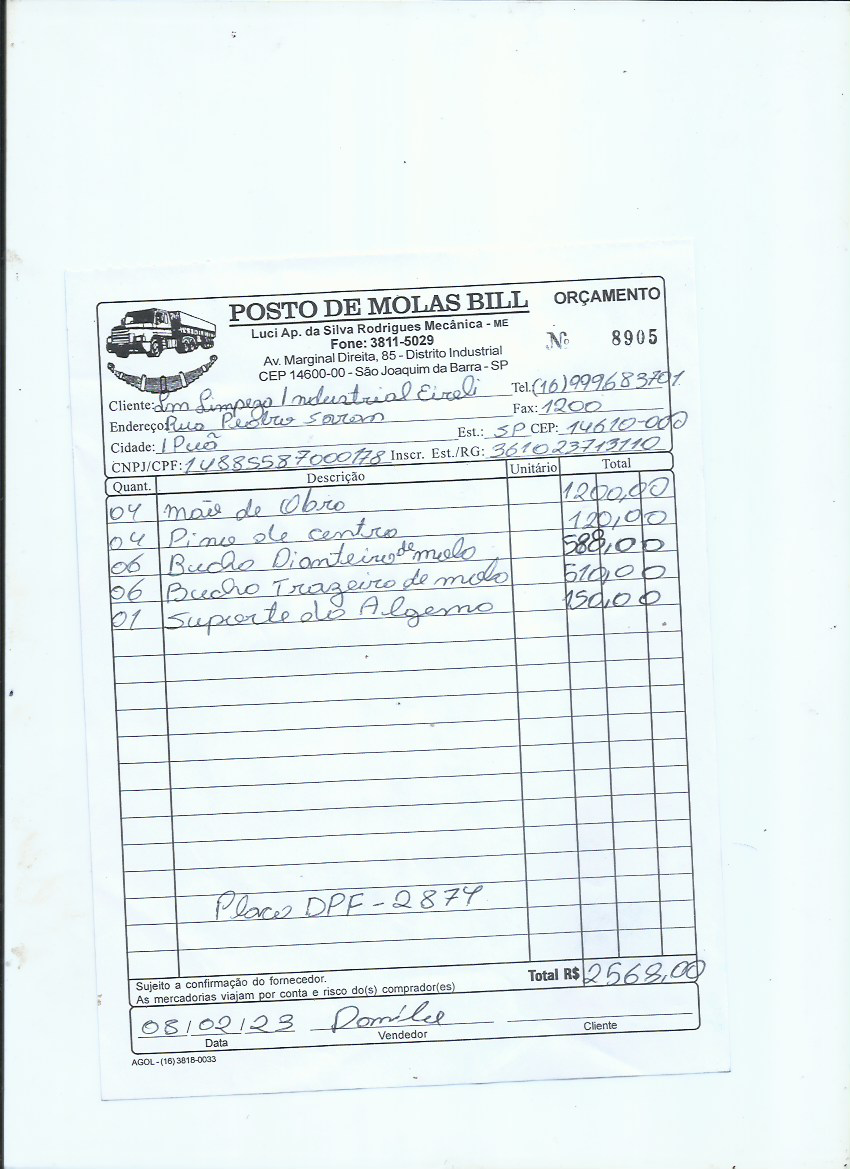 POSTO DE MOLAS BILL
ORÇAMENTO
Luci Ap. da Silva Rodrigues Mecânica - ME
Fone: 3811-5029
Nº 8905
Av. Marginal Direita, 85 - Distrito Industrial
CEP 14600-00 - São Joaquim da Barra - SP
Cliente: Lm Limpeza Industrial Eireli Tel. (16)999683701
Endereço Rua Pedro Fax: 1200
Cidade: Ipuã Est.: SP CEP: 14610-000
CNPJ/CPF: 14885587000178 Inscr. Est./RG: 361023713110
Quant. Descrição Unitário Total
04 mão de Obra 1200,00
04 Pino de centro 120,00
06 Bucha Dianteira de mola 588,00
06 Bucha Trazeira de mola 510,00
01 Suporte do Algema 150,00
Placa DPF-2874
Sujeito a confirmação do fornecedor.
As mercadorias viajam por conta e risco do(s) comprador(es)
Total R$ 2568,00
08/02/23
Data Vendedor Cliente
AGOL - (16) 3818-0033